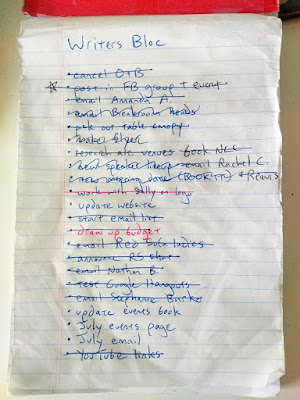 Writers Bloc
• cancel O+B
• post in FB group + event
• email Amanda A.
• email Breakroom Heads
• pick out table canopy
• make flyer
• research alt. venues book NLC
• new speaker email Rachel C.
• new meeting date (BOOK IT!) +
• work with Sally on logo
• update website
• start email list
• draw up budget
• email Red Indies
• announce RS
• email Nathan B.
• test Google Hangouts
• email Stephanie
• update events book
• July events page
• July email
• YouTube links